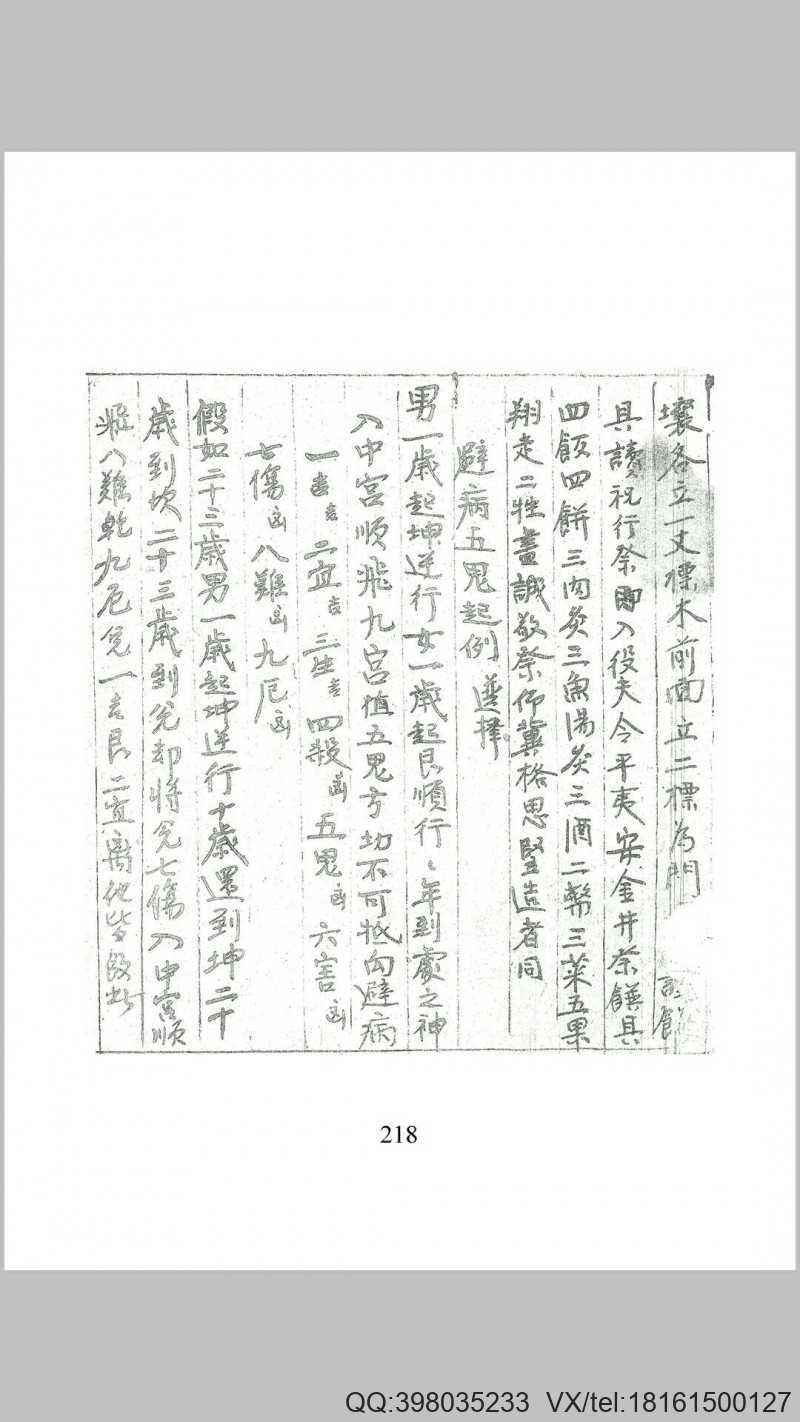 壤各立一丈標木前面立二標為門
具讀祝行祭 入役夫令平夷安金井祭饌具
四飯四餅三肉炙三魚湯炙三酒二幣三菜五果
翔走二牲盡誠敬祭仰冀格思竪造者同
避病五鬼起例 選擇
男一歲起坤逆行女一歲起艮順行〻年到處之神
入中宮順飛九宮值五鬼方切不可抵向避病
一吉 二宜吉 三生吉 四殺凶 五鬼凶 六害凶
七傷凶 八難凶 九厄凶
假如二十三歲男一歲起坤逆行十歲還到坤二十
歲到坎二十三歲到兌却將兌七傷入中宮順
飛八難乾九厄兌一吉艮二宜离他皆
218
QQ:398035233 VX/tel:18161500127